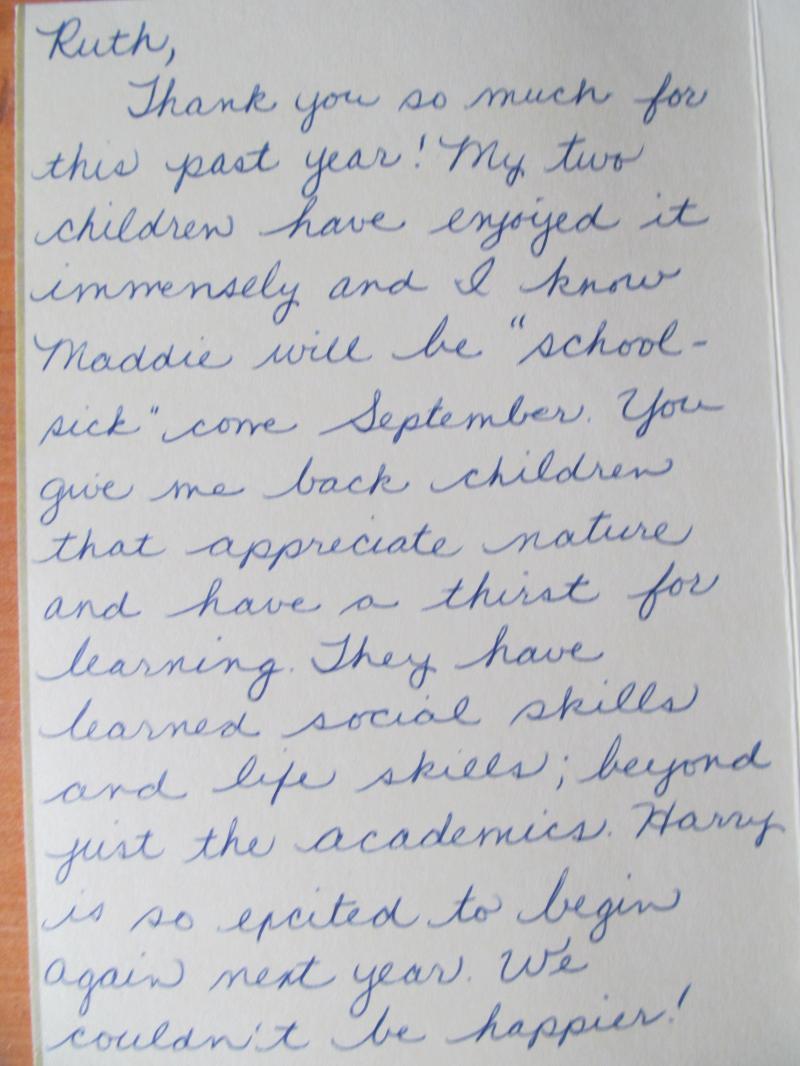 Ruth,
Thank you so much for
this past year! My two
children have enjoyed it
immensely and I know
Maddie will be "school-
sick" come September. You
give me back children
that appreciate nature
and have a thirst for
learning. They have
learned social skills
and life skills; beyond
just the academics. Harry
is so excited to begin
again next year. We
couldn't be happier!